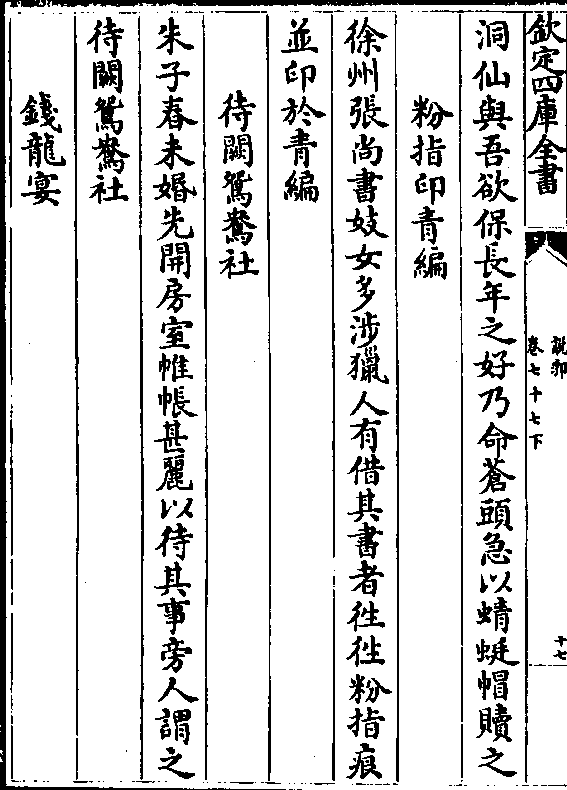 欽定四庫全書
說郛
卷七十七下
十七
洞仙與吾欲保長年之好乃命蒼頭急以蜻蜓帽贖之
粉指印青編
徐州張尚書妓女多涉獵人有借其書者徃徃粉指痕
並印於青編
待闕鴛鴦社
朱子春未婚先開房室帷帳甚麗以待其事旁人謂之
待闕鴛鴦社
錢龍宴